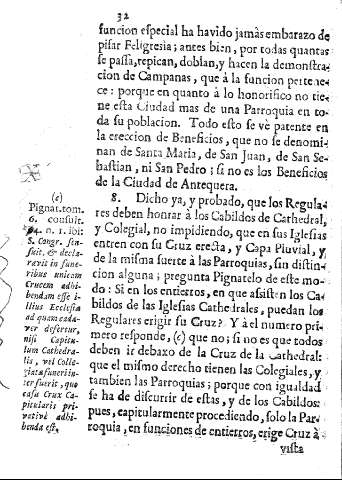 32
funcion especial ha havido jamàs embarazo de
pisar Feligresia; antes bien, por todas quantas
se passa, repican, doblan, y hacen la demonstra-
cion de Campanas, que à la funcion pertene-
ce: porque en quanto à lo honorifico no tie-
ne esta Ciudad mas de una Parroquia en to-
da su poblacion. Todo esto se vè patente en
la ereccion de Beneficios, que no se denomi-
nan de Santa Maria, de San Juan, de San Se-
bastian, ni San Pedro; si no es los Beneficios
de la Ciudad de Antequera.
8. Dicho ya, y probado, que los Regula-
res deben honrar à los Cabildos de Cathedral,
y Colegial, no impidiendo, que en sus Iglesias
entren con su Cruz erecta, y Capa Pluvial, y
de la misma suerte à las Parroquias, sin distin-
cion alguna; pregunta Pignatelo de este mo-
do: Si en los entierros, en que asisten los Ca-
bildos de las Iglesias Cathedrales, puedan los
Regulares erigir su Cruz? Y à el numero pri-
mero responde, (c) que no; si no es que todos
deben ir debaxo de la Cruz de la Cathedral:
que el mismo derecho tienen las Colegiales, y
tambien las Parroquias; porque con igualdad
se ha de discurrir de estas, y de los Cabildos:
pues, capitularmente procediendo, solo la Par-
roquia, en funciones de entierros, erige Cruz à
vista
(c)
Pignat. tom.
6. consult.
94. n. 1. ibi:
S. Congr. sen-
suit, & decla-
ravit in fune-
ribus unicam
Crucem adhi-
bendam esse i-
llius Ecclesiæ
ad quam cada-
ver defertur,
nisi Capitu-
lum Cathedra-
lis, vel Colle-
giatæ funeri in-
terfuerit, quo
casu Crux Ca-
pitularis pri-
vativè adhi-
benda est.